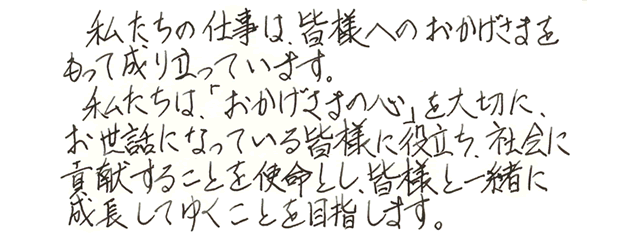 私たちの仕事は、皆様へのおかげさまを
もって成り立っています。
私たちは、「おかげさまの心」を大切に、
お世話になっている皆様に役立ち、社会に
貢献することを使命とし、皆様と一緒に
成長してゆくことを目指します。